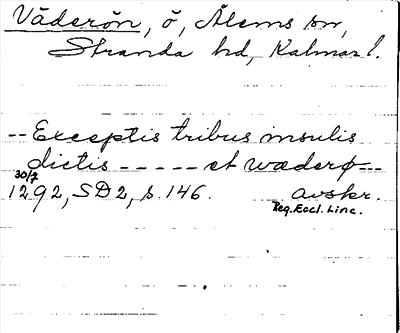 Väderön, ö, Ålems sn,
Stranda hd, Kalmar l.
-- Exceptis tribus insulis
dictis ----- et wæderø --
30/7
1292, SD2, s. 146. avskr.
Reg. Eccl. Linc.